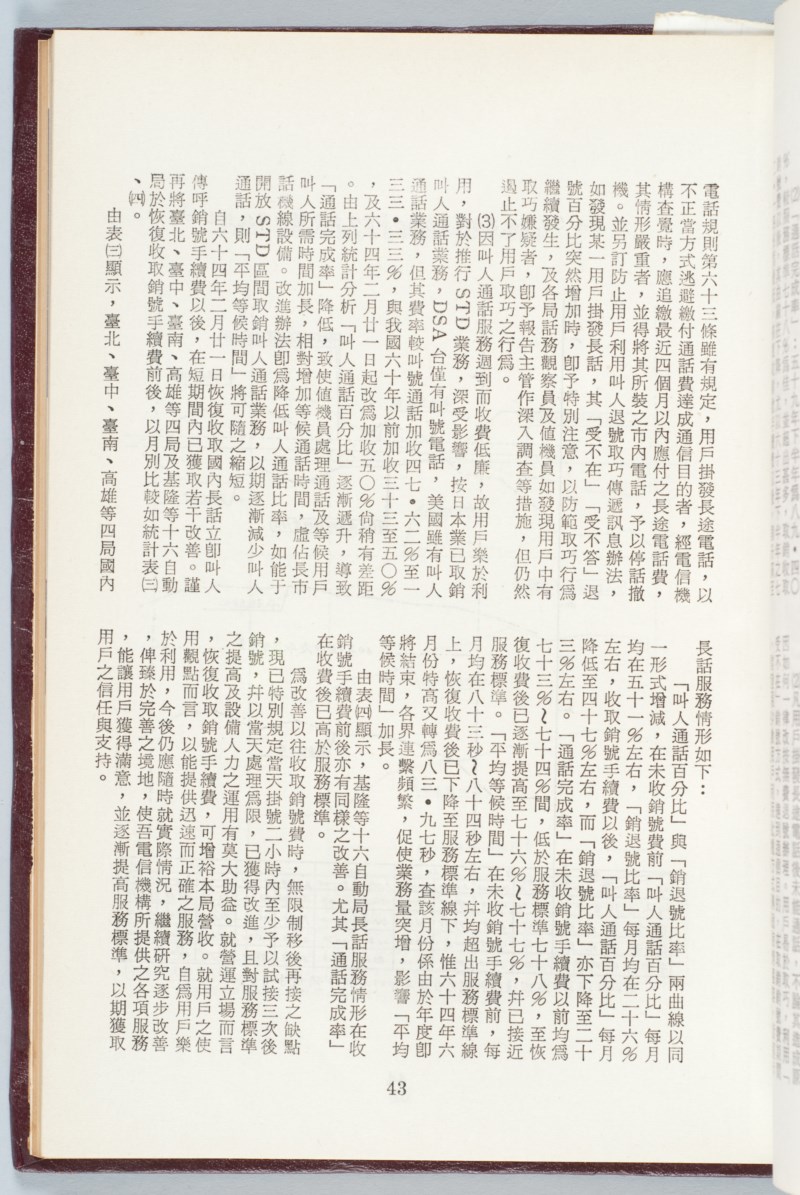 電話規則第六十三條雖有規定，用戶掛發長途電話，以
不正當方式逃避繳付通話費達成通信目的者，經電信機
構查覺時，應追繳最近四個月以內應付之長途電話費，
其情形嚴重者，並得將其所裝之市內電話，予以停話撤
機。並另訂防止用戶利用叫人退號取巧傳遞訊息辦法，
如發現某一用戶掛發長話，其「受不在」「受不答」退
號百分比突然增加時，卽予特別注意，以防範取巧行爲
繼續發生，及各局話務觀察員及值機員如發現用戶中有
取巧嫌疑者，卽予報告主管作深入調查等措施，但仍然
遏止不了用戶取巧之行爲。
⑶因叫人通話服務週到而收費低廉，故用戶樂於利
用，對於推行STD業務，深受影響，按日本業已取銷
叫人通話業務，DSA台僅有叫號電話，美國雖有叫人
通話業務，但其費率較叫號通話加收四七•六二％至一
三三•三三％，與我國六十年以前加收三十三至五〇％
，及六十四年二月廿一日起改爲加收五〇％尙稍有差距
。由上列統計分析「叫人通話百分比」逐漸遞升，導致
「通話完成率」降低，致使値機員處理通話及等候用戶
叫人所需時間加長，相對增加等候通話時間，虛佔長市
話機線設備。改進辦法卽爲降低叫人通話比率，如能于
開放STD區間取銷叫人通話業務，以期逐漸減少叫人
通話，則「平均等候時間」將可隨之縮短。
自六十四年二月廿一日恢復收取國內長話立卽叫人
傳呼銷號手續費以後，在短期間內已獲取若干改善。謹
再將臺北、臺中、臺南、高雄等四局及基隆等十六自動
局於恢復收取銷號手續費前後，以月別比較如統計表㈢
、㈣。
由表㈢顯示，臺北、臺中、臺南、高雄等四局國內
長話服務情形如下：
「叫人通話百分比」與「銷退號比率」兩曲線以同
一形式增減，在未收銷號費前「叫人通話百分比」每月
均在五十一％左右，「銷退號比率」每月均在二十六％
左右，收取銷號手續費以後，「叫人通話百分比」每月
降低至四十七％左右，而「銷退號比率」亦下降至二十
三％左右。「通話完成率」在未收銷號手續費以前均爲
七十三％～七十四％間，低於服務標準七十八％，至恢
復收費後已逐漸提高至七十六％～七十七％，幷已接近
服務標準。「平均等候時間」在未收銷號手續費前，每
月均在八十三秒～八十四秒左右，幷均超出服務標準線
上，恢復收費後已下降至服務標準線下，惟六十四年六
月份特高又轉爲八三•九七秒，查該月份係由於年度卽
將結束，各界連繫頻繁，促使業務量突增，影響「平均
等候時間」加長。
由表㈣顯示，基隆等十六自動局長話服務情形在收
銷號手續費前後亦有同樣之改善。尤其「通話完成率」
在收費後已高於服務標準。
爲改善以往收取銷號費時，無限制移後再接之缺點
，現已特別規定當天掛號二小時內至少予以試接三次後
銷號，幷以當天處理爲限，已獲得改進，且對服務標準
之提高及設備人力之運用有莫大助益。就營運立場而言
，恢復收取銷號手續費，可增裕本局營收。就用戶之使
用觀點而言，以能提供迅速而正確之服務，自爲用戶樂
於利用，今後仍應隨時就實際情況，繼續硏究逐步改善
，俾臻於完善之境地，使吾電信機構所提供之各項服務
，能讓用戶獲得滿意，並逐漸提高服務標準，以期獲取
用戶之信任與支持。
43